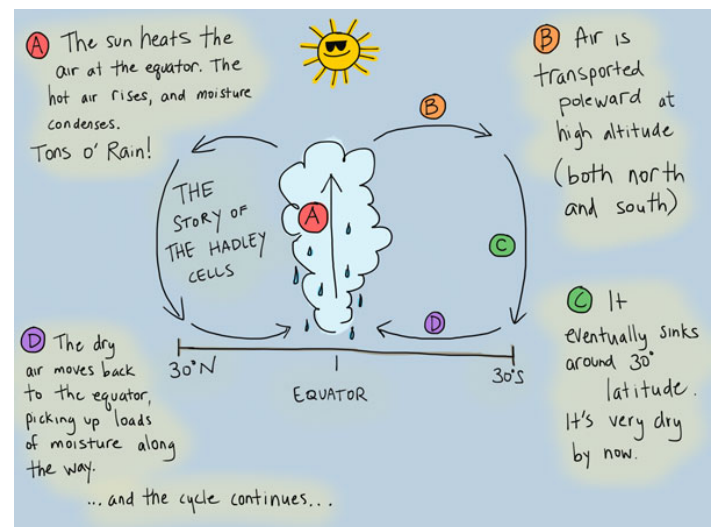 A The sun heats the
air at the equator. The
hot air rises, and moisture
condenses.
Tons o' Rain!
B Air is
transported
poleward at
high altitude
(both north
and south)
B
THE
STORY OF
THE HADLEY
CELLS
A
C
D
30°N
EQUATOR
30°S
C It
eventually sinks
around 30°
latitude.
It's very dry
by now.
D The dry
air moves back
to the equator,
picking up loads
of moisture along
the way.
...and the cycle continues...